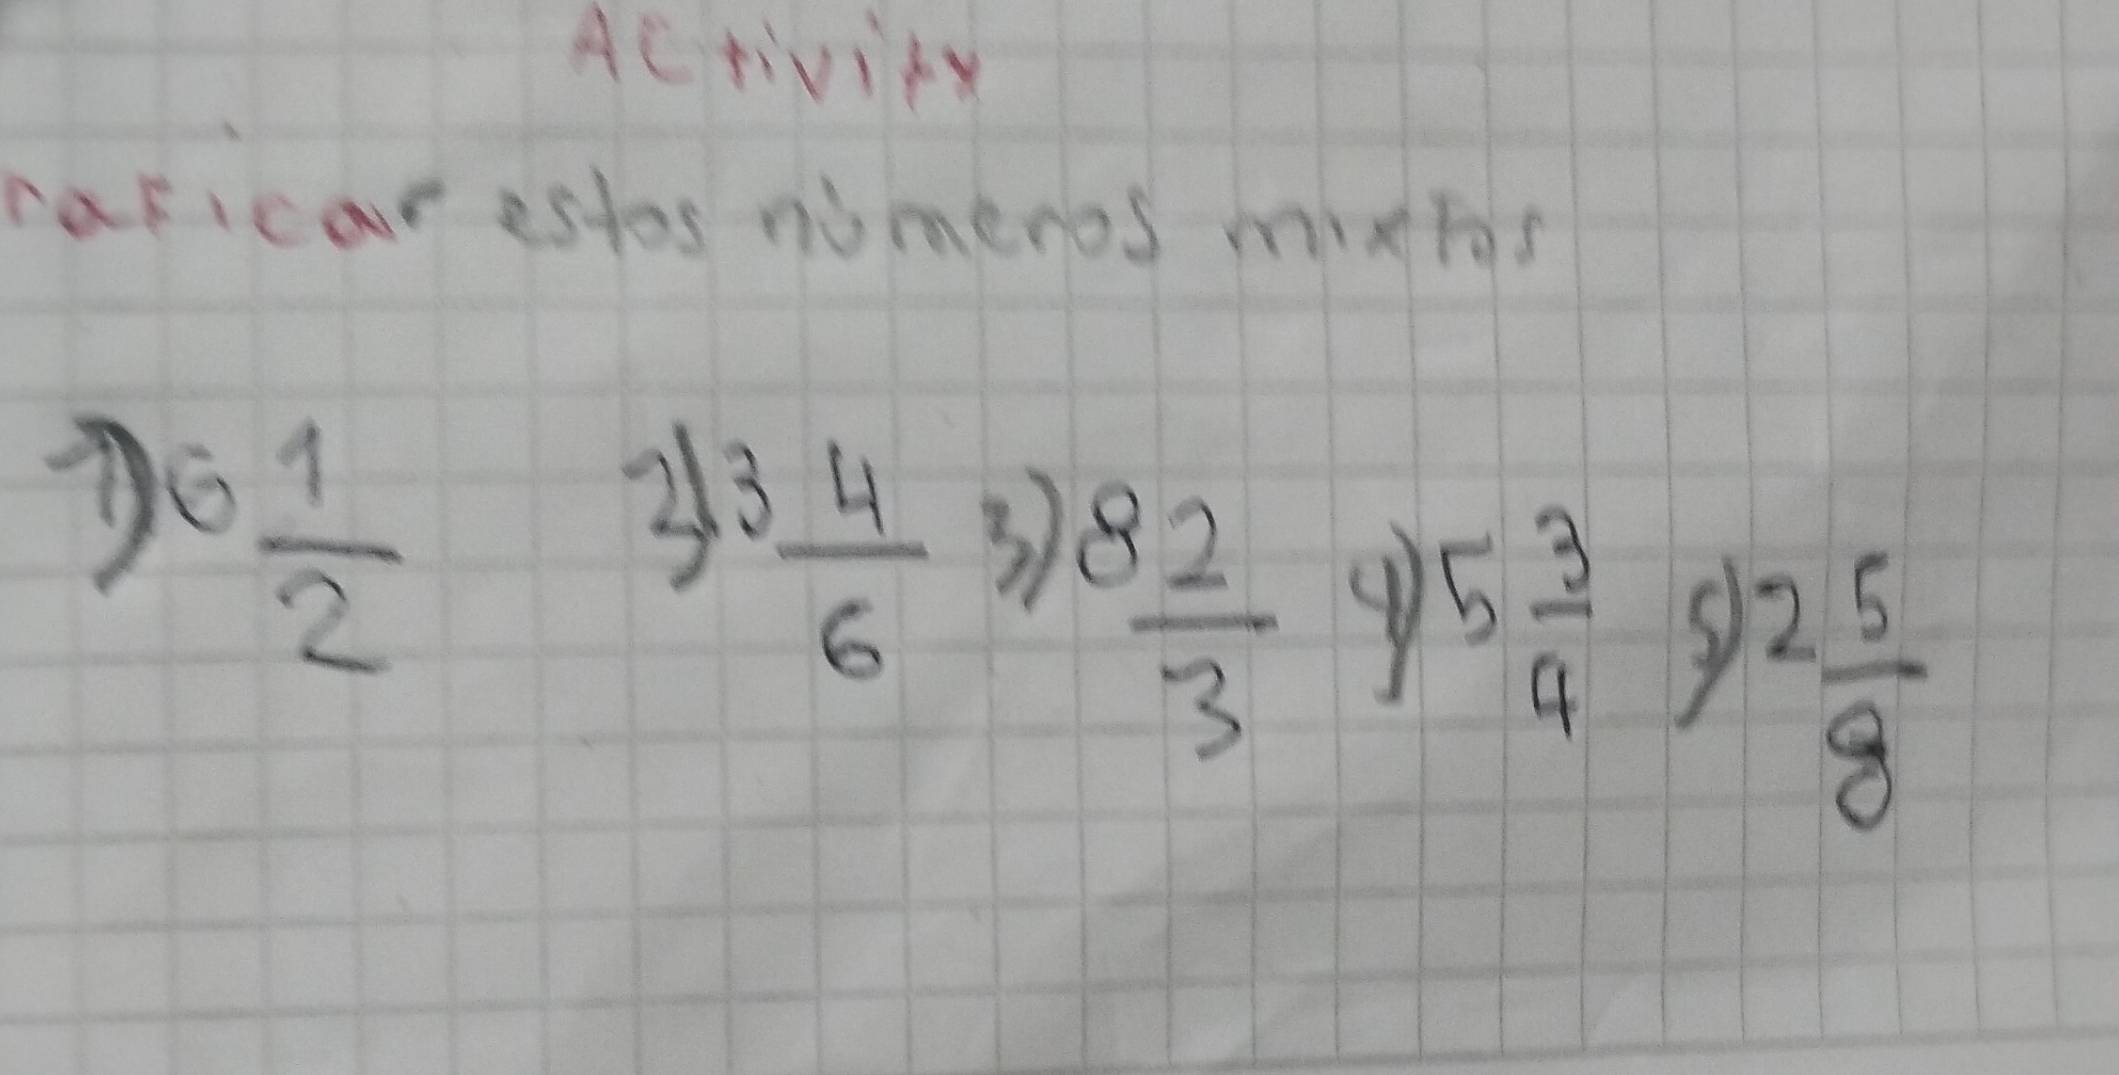 Activity
raficar estos números mixtos
1) 6 1/2 2) 3 4/6 3) 8 2/3 4) 5 3/4 5) 2 5/8